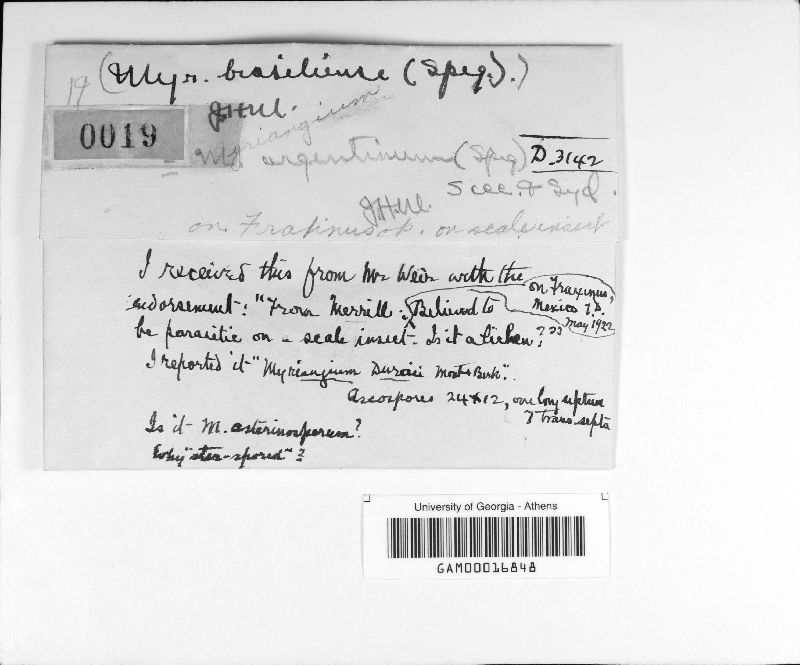 19 (Myr. brasiliense (Speg.).)
J.H.M.
0019
Myriangium
My. argentinum (Speg)
D_3142
Sacc. & Syd.
J.H.M.
on Fraxinus sp. on scale insect
I received this from Mr Weir with the
endorsement: "From Merrill: Believed to
on Fraxinus,
Mexico T.D.
May 1922
be parasitic on a scale insect. Is it a lichen?"
I reported it "Myriangium Duriaei Mont & Berk".
Ascospores 24 x 12, one long septum
7 trans-septa
Is it M. asterinosporum?
Why "star-spored"?
University of Georgia - Athens
GAM00016848